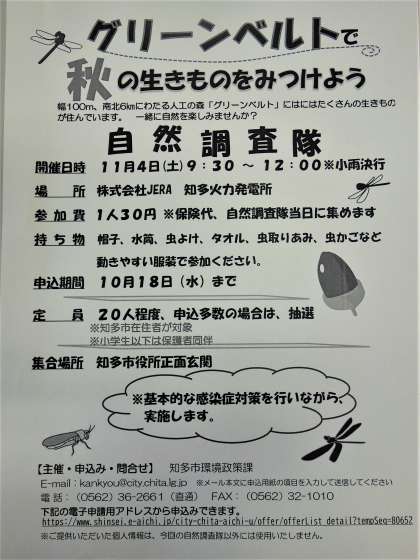 グリーンベルトで
秋の生きものをみつけよう
幅100m、南北6kmにわたる人工の森「グリーンベルト」にはにはたくさんの生きもの
が住んでいます。 一緒に自然を楽しみませんか？
自然調査隊
開催日時 11月4日(土)9：30 ～ 12：00※小雨決行
場所 株式会社JERA 知多火力発電所
参加費 1人30円 ※保険代、自然調査隊当日に集めます
持ち物 帽子、水筒、虫よけ、タオル、虫取りあみ、虫かごなど
動きやすい服装で参加ください。
申込期間 10月18日（水）まで
定員 20人程度、申込多数の場合は、抽選
※知多市在住者が対象
※小学生以下は保護者同伴
集合場所 知多市役所正面玄関
※基本的な感染症対策を行いながら、
実施します。
【主催・申込み・問合せ】 知多市環境政策課
E-mail：kankyou@city.chita.lg.jp ※メール本文に申込用紙の項目を入力して送信してください
電話：（0562）36-2661（直通） FAX：（0562）32-1010
下記の電子申請用アドレスから申込みできます。
https://www.shinsei.e-aichi.jp/city-chita-aichi-u/offer/offerList_detail?tempSeq=80652
※ご提供いただいた個人情報は、今回の自然調査隊以外には使用いたしません。